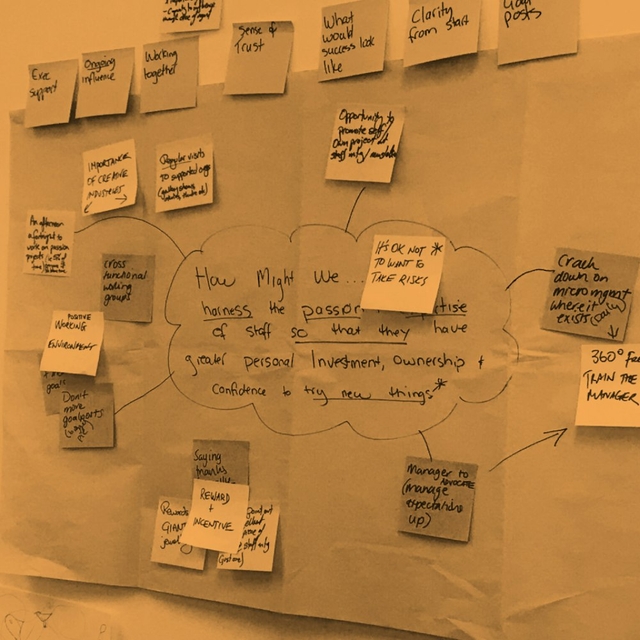 Exec
support
Ongoing
influence
Working
together
Sense of
Trust
What
would
success look
like
Clarity
from start
posts
Opportunity to
promote staff/
own project at
staff only/
IMPORTANCE
OF CREATIVE
INDUSTRIES
Regular visits
to supported orgs
An afternoon
a fortnight to
work on passion
projects
cross
functional
working
groups
POSITIVE
WORKING
ENVIRONMENT
goals
Don't
move
goalposts
How Might We...
harness the passion
of staff so that they have
greater personal Investment, ownership +
confidence to try new things*
IT'S OK NOT *
TO WANT TO
TAKE RISES
Crack
down on
micromgmt
where it
exists (
360°
TRAIN THE
MANAGER
Manager to
ADVOCATE
(manage
expectations
up)
Saying
thanks
REWARD
+
INCENTIVE
Rewards
GIANT
staff only